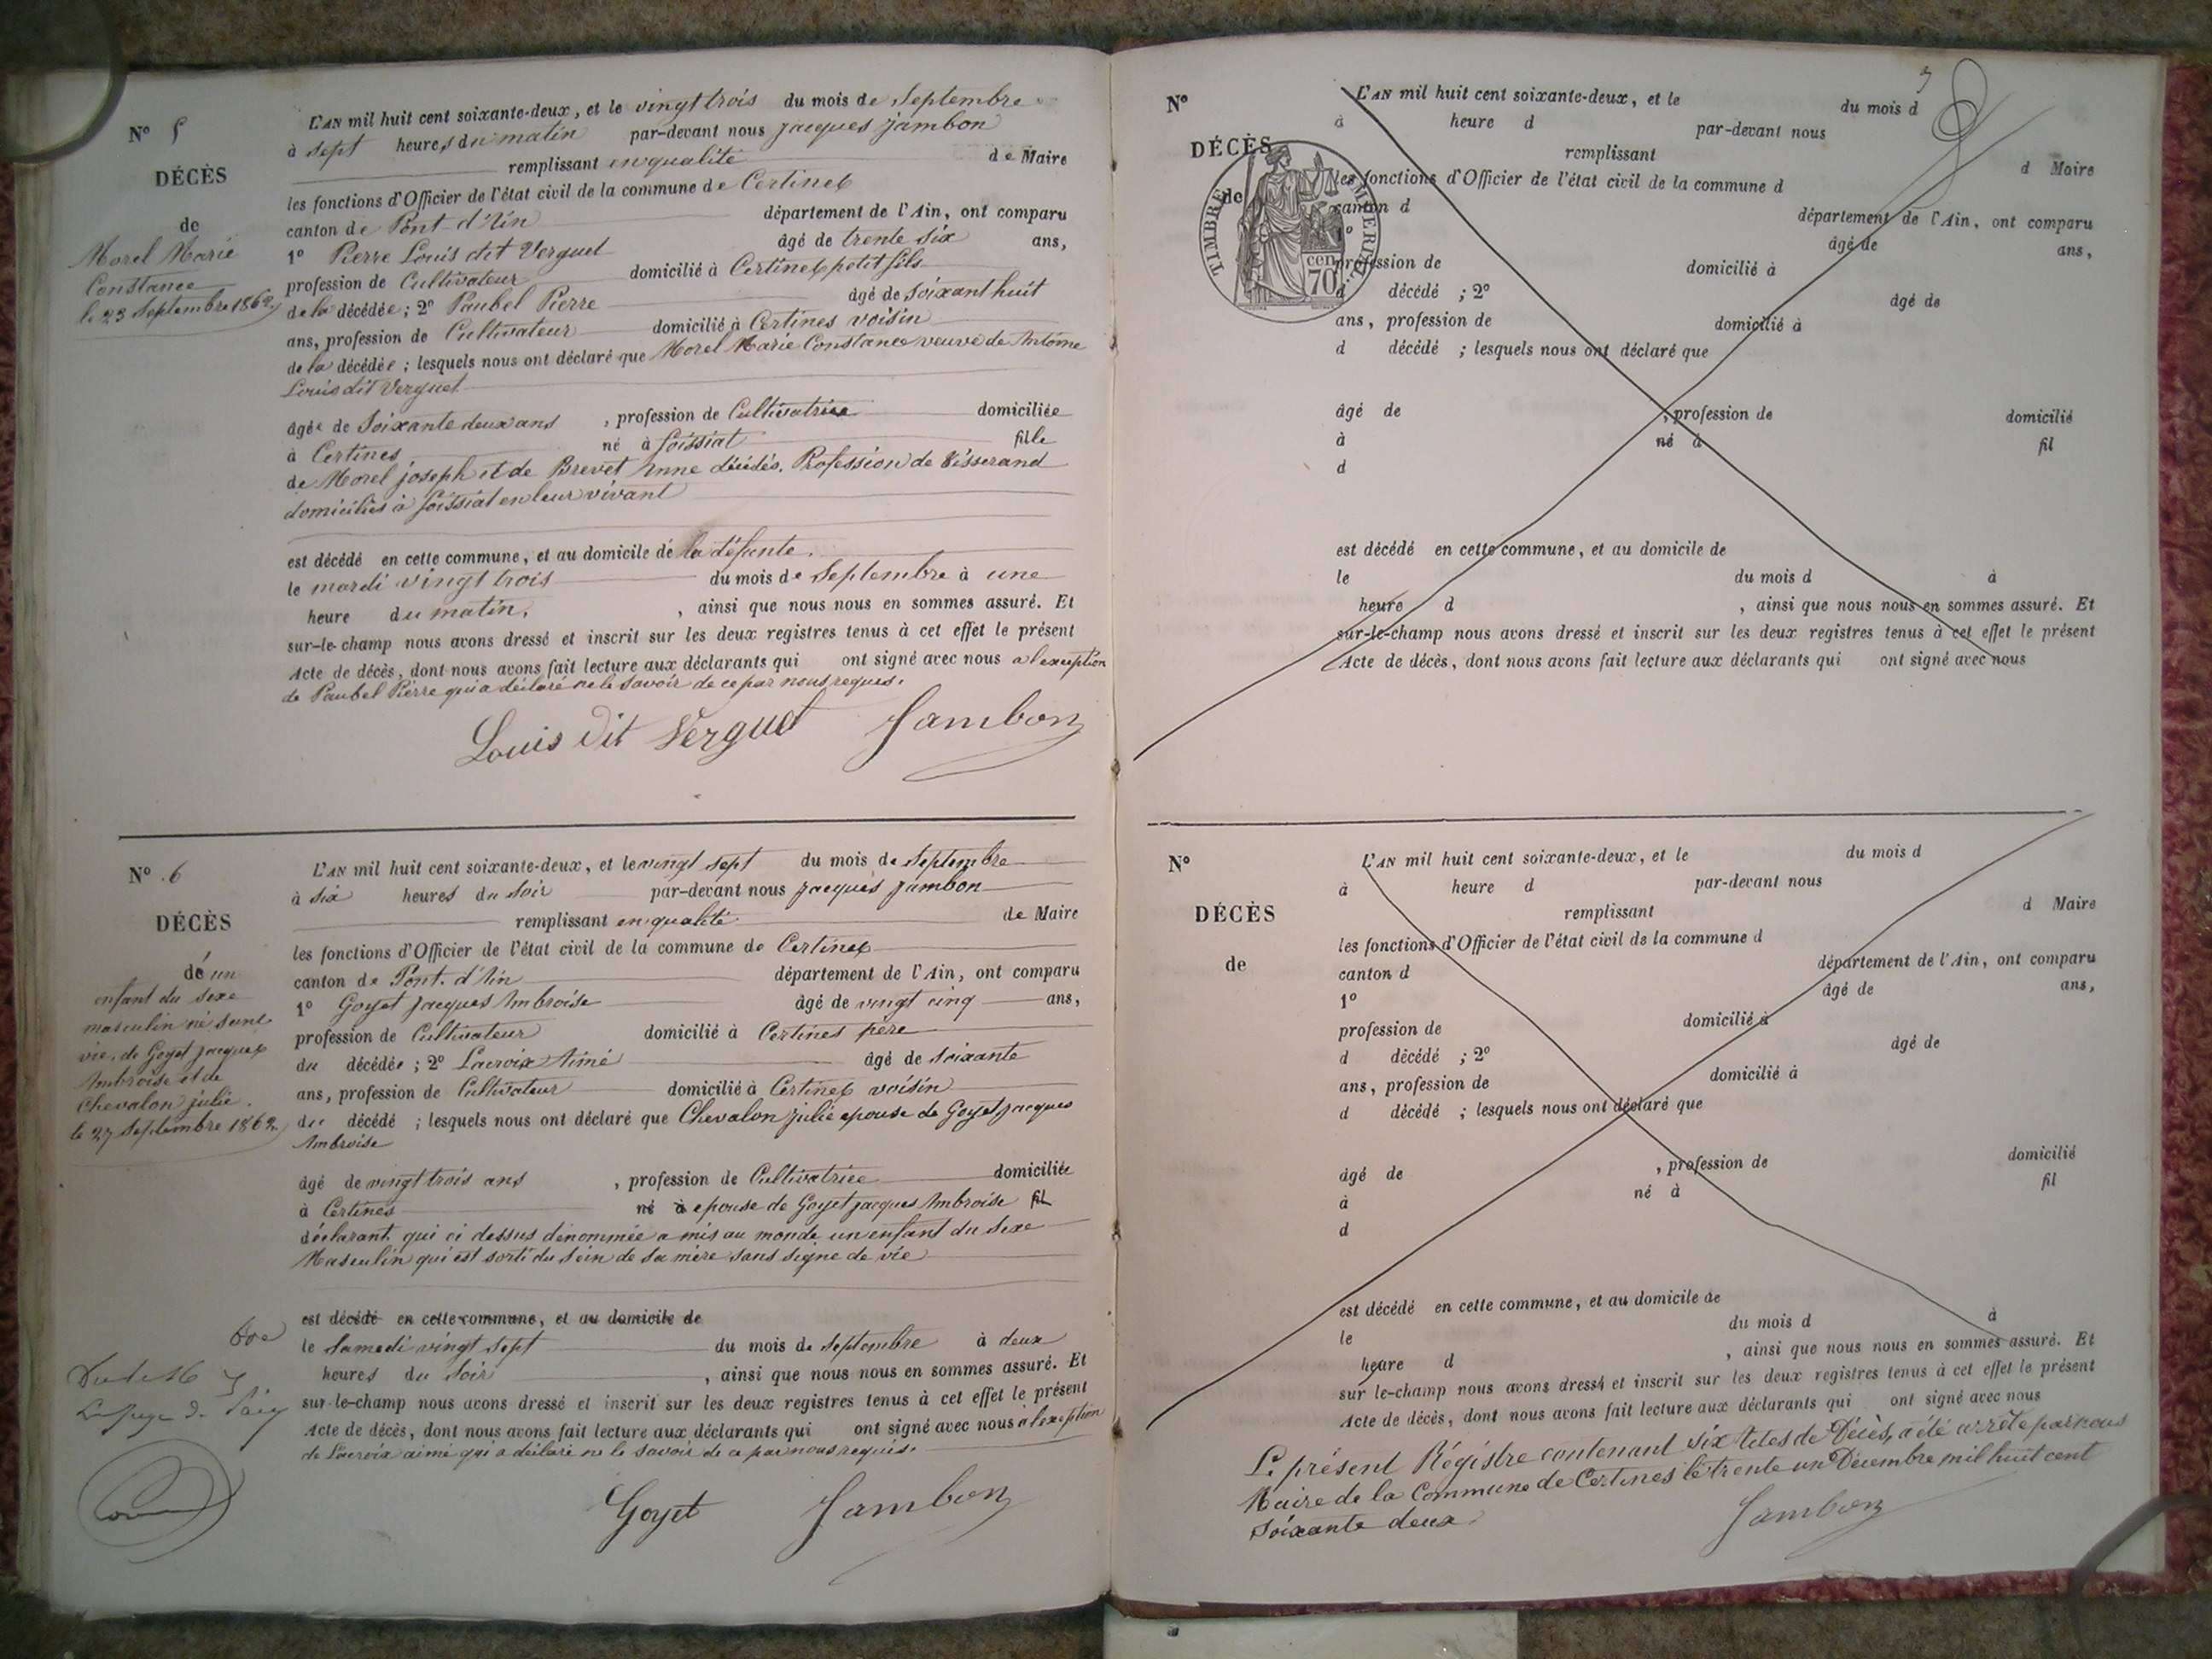 N° 5
DÉCÈS
de
Morel Marie
Constance
le 23 Septembre 1862
L'AN mil huit cent soixante-deux, et le vingt trois du mois de Septembre
à sept heures du matin par-devant nous jacques jambon
remplissant en qualité de Maire
les fonctions d'Officier de l'état civil de la commune de Certines
canton de Pont d'Ain département de l'Ain, ont comparu
1° Pierre Louis dit Verguet âgé de trente six ans,
profession de Cultivateur domicilié à Certines petit fils
de la décédée ; 2° Paubel Pierre âgé de soixant huit
ans, profession de Cultivateur domicilié à Certines voisin
de la décédée ; lesquels nous ont déclaré que Morel Marie Constance veuve de Antoine
Louis dit Verguet
âgée de Soixante deux ans , profession de Cultivatrice domiciliée
à Certines né à foissiat fille
de Morel joseph et de Brevet Anne décédés, Profession de Tisserand
domiciliés à foissiat en leur vivant
est décédé en cette commune, et au domicile de la défunte.
le mardi vingt trois du mois de Septembre à une
heure du matin, , ainsi que nous nous en sommes assuré. Et
sur-le-champ nous avons dressé et inscrit sur les deux registres tenus à cet effet le présent
Acte de décès, dont nous avons fait lecture aux déclarants qui ont signé avec nous a l'exception
de Paubel Pierre qui a déclaré ne le savoir de ce par nous requis.
Louis dit Verguet Jambon
N° 6
DÉCÈS
de un
enfant du sexe
masculin né sans
vie, de Goyet jacques
Ambroise et de
Chevalon julie.
le 27 Septembre 1862
L'AN mil huit cent soixante-deux, et le vingt sept du mois de Septembre
à six heures du soir par-devant nous jacques jambon
remplissant en qualité de Maire
les fonctions d'Officier de l'état civil de la commune de Certines
canton de Pont. d'Ain département de l'Ain, ont comparu
1° Goyet jacques Ambroise âgé de vingt cinq ans,
profession de Cultivateur domicilié à Certines père
du décédée ; 2° Lacroix Aimé âgé de soixante
ans, profession de Cultivateur domicilié à Certines voisin
du décédé ; lesquels nous ont déclaré que Chevalon julie epouse de Goyet jacques
Ambroise
âgé de vingt trois ans , profession de Cultivatrice domiciliée
à Certines né à epouse de Goyet jacques Ambroise fil
déclarant, qui ci dessus dénommée a mis au monde un enfant du sexe
Masculin qui est sorti du sein de sa mère sans signe de vie
est décédé en cette commune, et au domicile de
le Samedi vingt sept du mois de septembre à deux
heures du soir , ainsi que nous nous en sommes assuré. Et
sur-le-champ nous avons dressé et inscrit sur les deux registres tenus à cet effet le présent
Acte de décès, dont nous avons fait lecture aux déclarants qui ont signé avec nous a l'exception
de Lacroix aimé qui a déclaré ne le savoir de ce par nous requis.
Goyet Jambon
N°
DÉCÈS
de
TIMBRE IMPÉRIAL
70 cen
L'AN mil huit cent soixante-deux, et le du mois d
à heure d par-devant nous
remplissant d Maire
les fonctions d'Officier de l'état civil de la commune d
canton d département de l'Ain, ont comparu
1° âgé de ans,
profession de domicilié à
d décédé ; 2° âgé de
ans, profession de domicilié à
d décédé ; lesquels nous ont déclaré que
âgé de , profession de domicilié
à né à fil
d
est décédé en cette commune, et au domicile de
le du mois d à
heure d , ainsi que nous nous en sommes assuré. Et
sur-le-champ nous avons dressé et inscrit sur les deux registres tenus à cet effet le présent
Acte de décès, dont nous avons fait lecture aux déclarants qui ont signé avec nous
N°
DÉCÈS
de
L'AN mil huit cent soixante-deux, et le du mois d
à heure d par-devant nous
remplissant d Maire
les fonctions d'Officier de l'état civil de la commune d
canton d département de l'Ain, ont comparu
1° âgé de ans,
profession de domicilié à
d décédé ; 2° âgé de
ans, profession de domicilié à
d décédé ; lesquels nous ont déclaré que
âgé de , profession de domicilié
à né à fil
d
est décédé en cette commune, et au domicile de
le du mois d à
heure d , ainsi que nous nous en sommes assuré. Et
sur le-champ nous avons dressé et inscrit sur les deux registres tenus à cet effet le présent
Acte de décès, dont nous avons fait lecture aux déclarants qui ont signé avec nous
Le présent Régistre contenant six Actes de Décès, a été arrêté par nous
Maire de la Commune de Certines le trente un Décembre mil huit cent
soixante deux.
Jambon